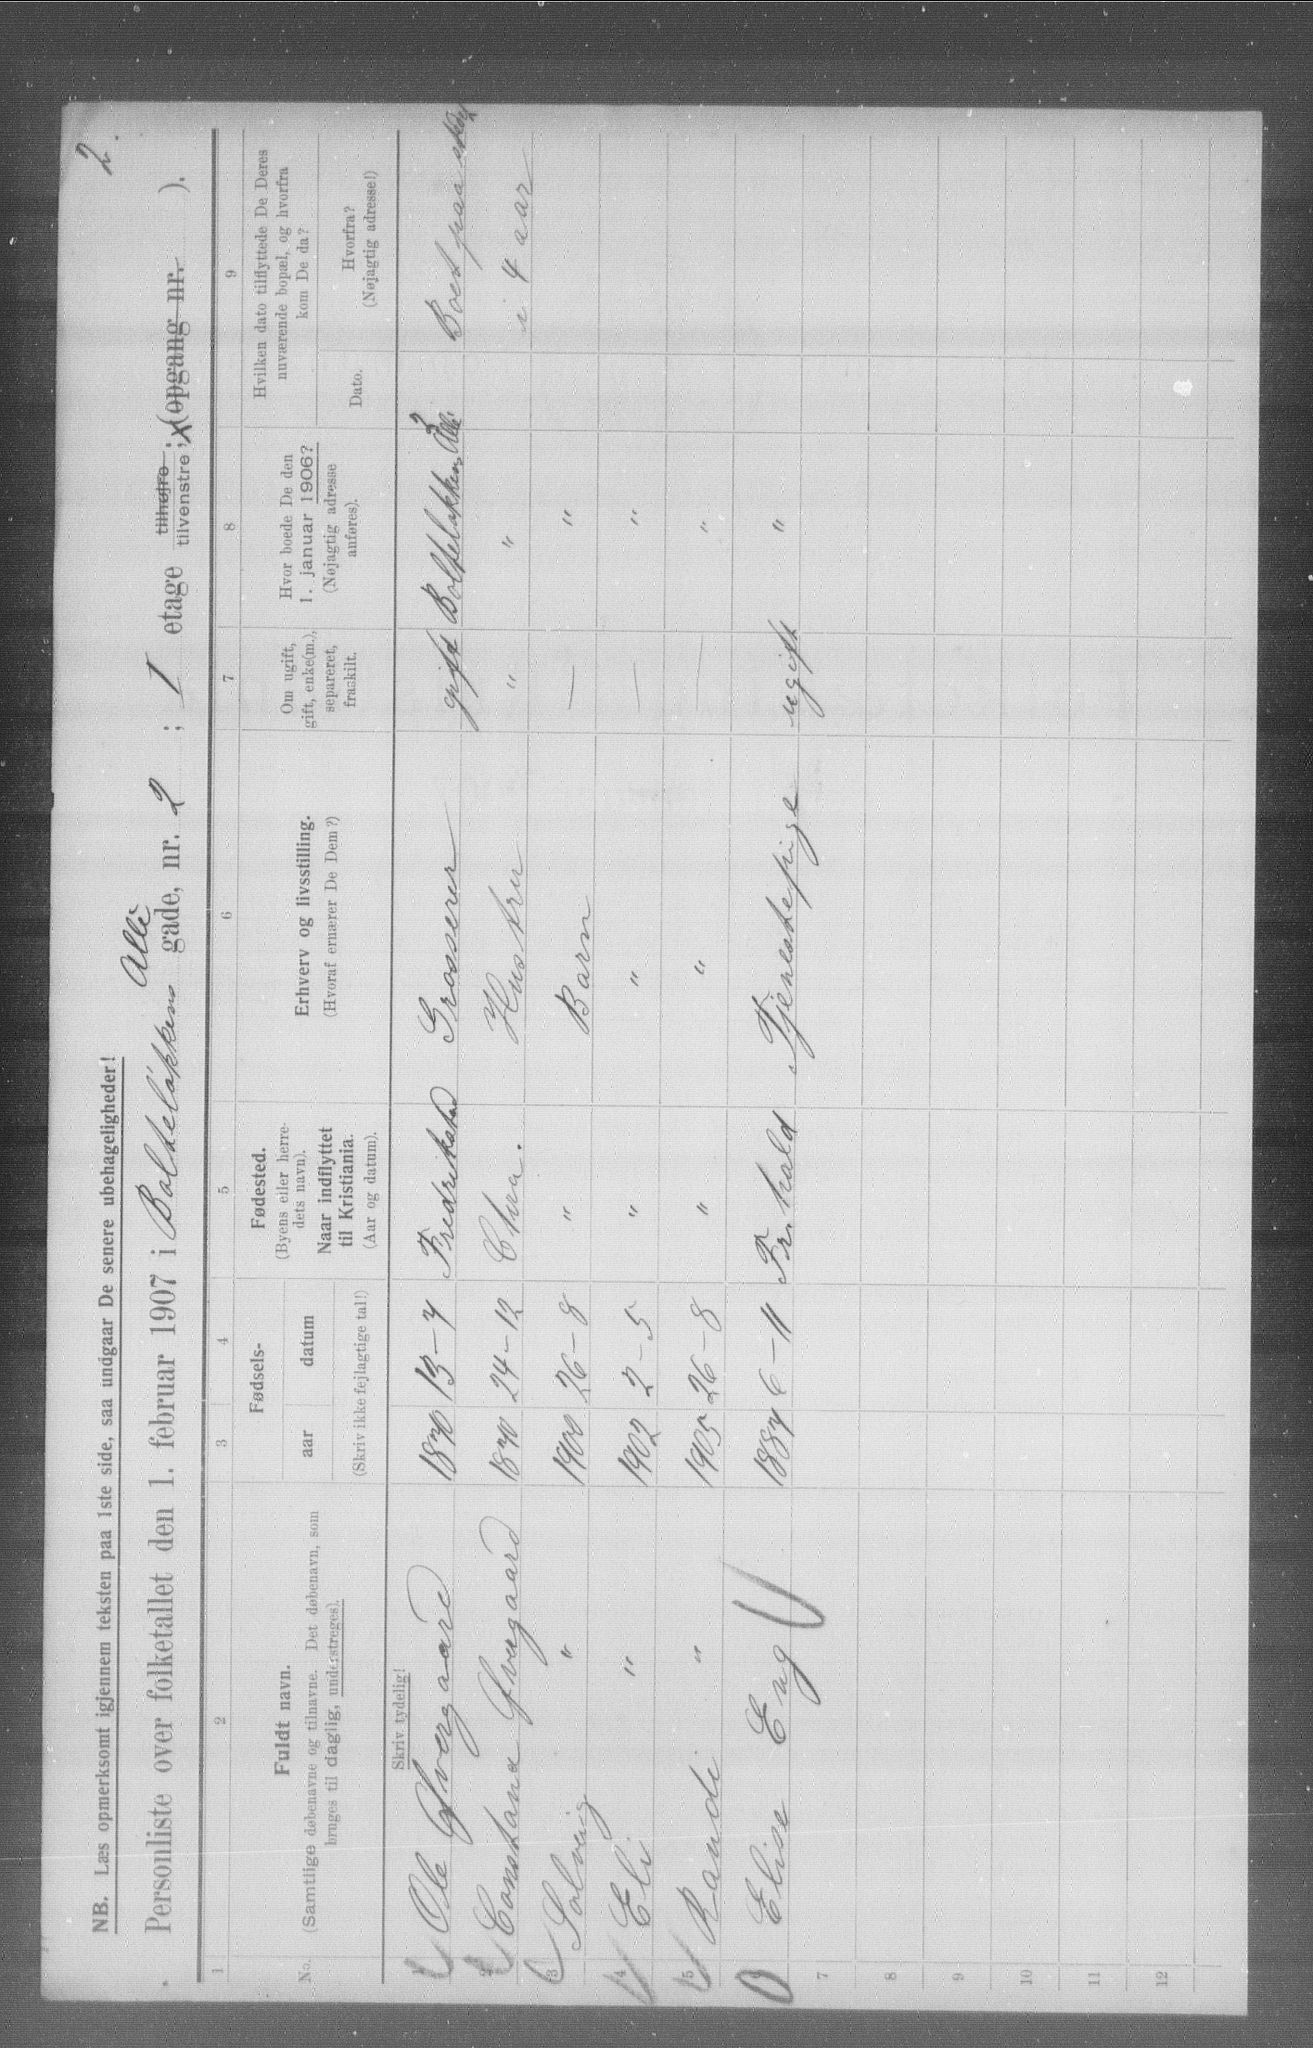 2.
NB. Læs opmerksomt igjennem teksten paa 1ste side, saa undgaar De senere ubehageligheder!
Personliste over folketallet den 1. februar 1907 i Bolteløkkens Allé gade, nr. 2 ; I etage tilhøjre ; tilvenstre ; (opgang nr. ).
1 2 3 4 5 6 7 8 9
No. Fuldt navn. (Samtlige døbenavne og tilnavne. Det døbenavn, som bruges til daglig, understreges).
Fødsels- aar datum (Skriv ikke fejlagtige tal!)
Fødested. (Byens eller herredets navn). Naar indflyttet til Kristiania. (Aar og datum).
Erhverv og livsstilling. (Hvoraf ernærer De Dem?)
Om ugift, gift, enke(m.), separeret, fraskilt.
Hvor boede De den 1. januar 1906? (Nøjagtig adresse anføres).
Hvilken dato tilflyttede De Deres nuværende bopæl, og hvorfra kom De da?
Dato. Hvorfra? (Nøjagtig adresse!)
Skriv tydelig!
1 Ole 1870 13-7 Fredrikstad Grosserer gift Bolteløkkens Allé 2 Boet paa
2 Constance 1870 24-12 Chra. Hustru " " i 4 aar
3 Solveig " 1900 26-8 " Barn — "
4 Eli " 1902 2-5 " " — "
5 Randi " 1905 26-8 " " — "
Elise Eng 1887 6-11 Fr.hald Tjenestepige ugift "
7
8
9
10
11
12